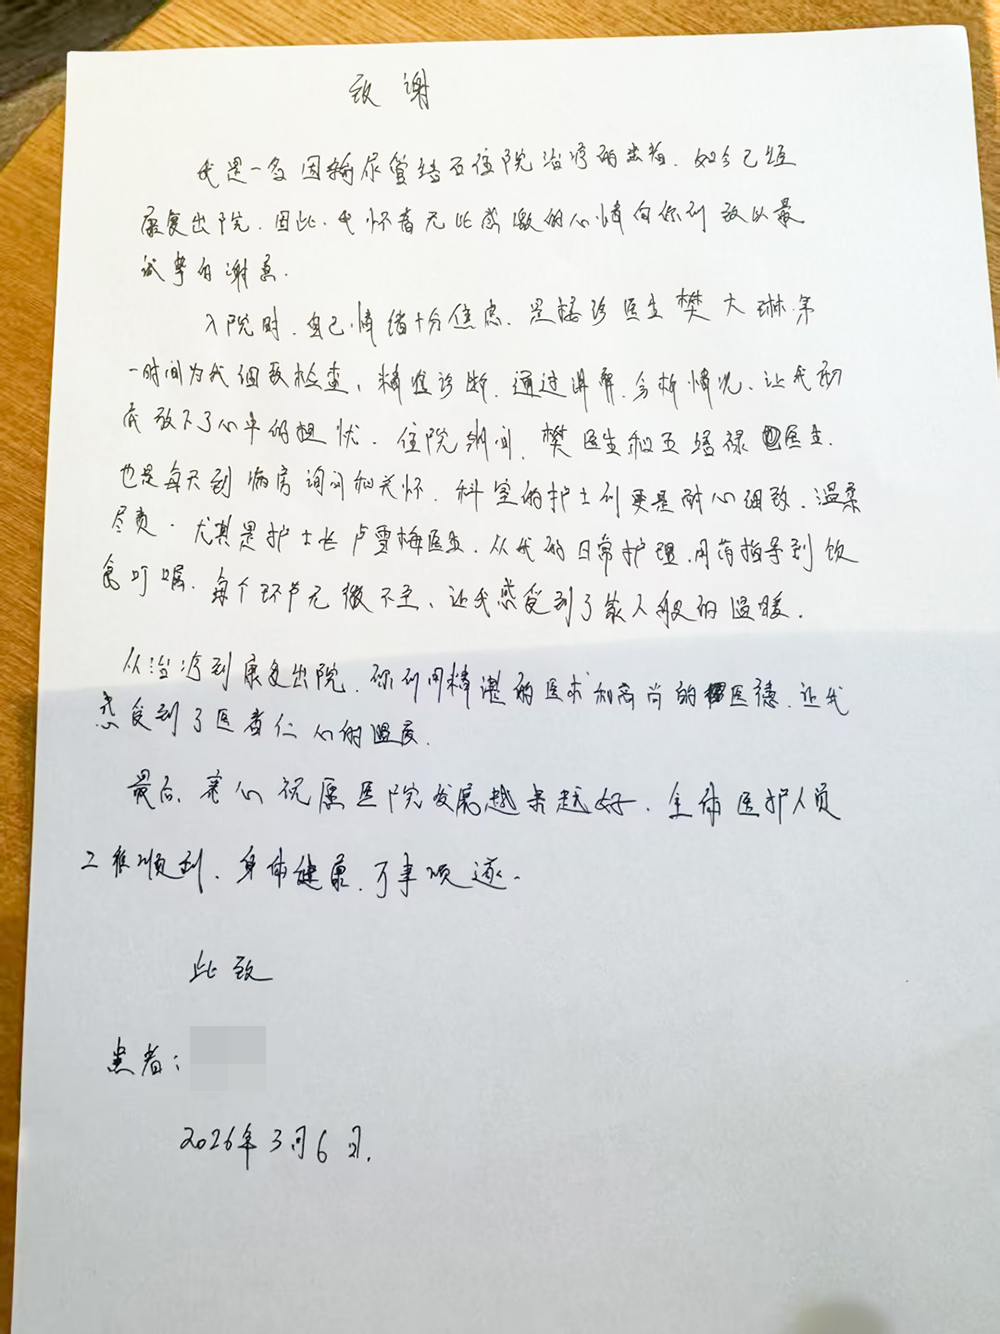 致谢
我是一名因输尿管结石住院治疗的患者.如今已经
康复出院.因此.我怀着无比感激的心情向你们致以最
诚挚的谢意.
入院时.自己情绪十分焦虑.是接诊医生樊大琳第
一时间为我细致检查、精准诊断.通过讲解.分析情况、让我彻
底放下了心中的担忧.住院期间.樊医生和王培禄医生.
也是每天到病房询问和关怀.科室的护士们更是耐心细致.温柔
尽责.尤其是护士长卢雪梅医生.从我的日常护理.用药指导到饮
食叮嘱.每个环节无微不至、让我感受到了家人般的温暖.
从治疗到康复出院.你们用精湛的医术和高尚的医德.让我
感受到了医者仁心的温度.
最后.衷心祝愿医院发展越来越好.全体医护人员
工作顺利.身体健康.万事顺遂.
此致
患者:
2026年3月6日.